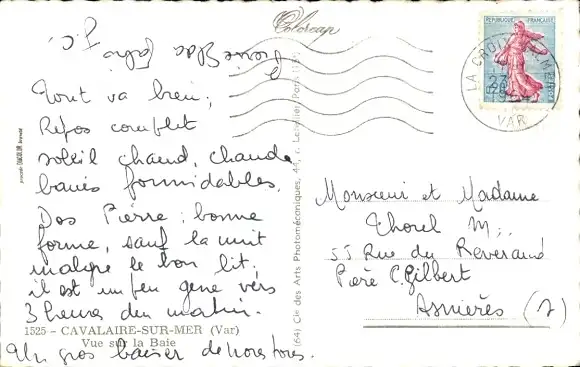 Colorcap
J.C.
Tout va bien,
Repos complet
soleil chaud, chauds
bains formidables,
Dos Pierre : bonne
forme, sauf la nuit
malgre le bon lit;
il est un peu gene vers
3 heures du matin.
1525 - CAVALAIRE-SUR-MER (Var)
Vue sur la Baie
Un gros baiser de nous tous.
(64) Cie des Arts Photomécaniques, 44, r. Letellier, Paris
REPUBLIQUE FRANÇAISE
LA CROIX
VAR
Monsieur et Madame
Thorel M.
55 Rue du Reverend
Père C. Gilbert
Asnières